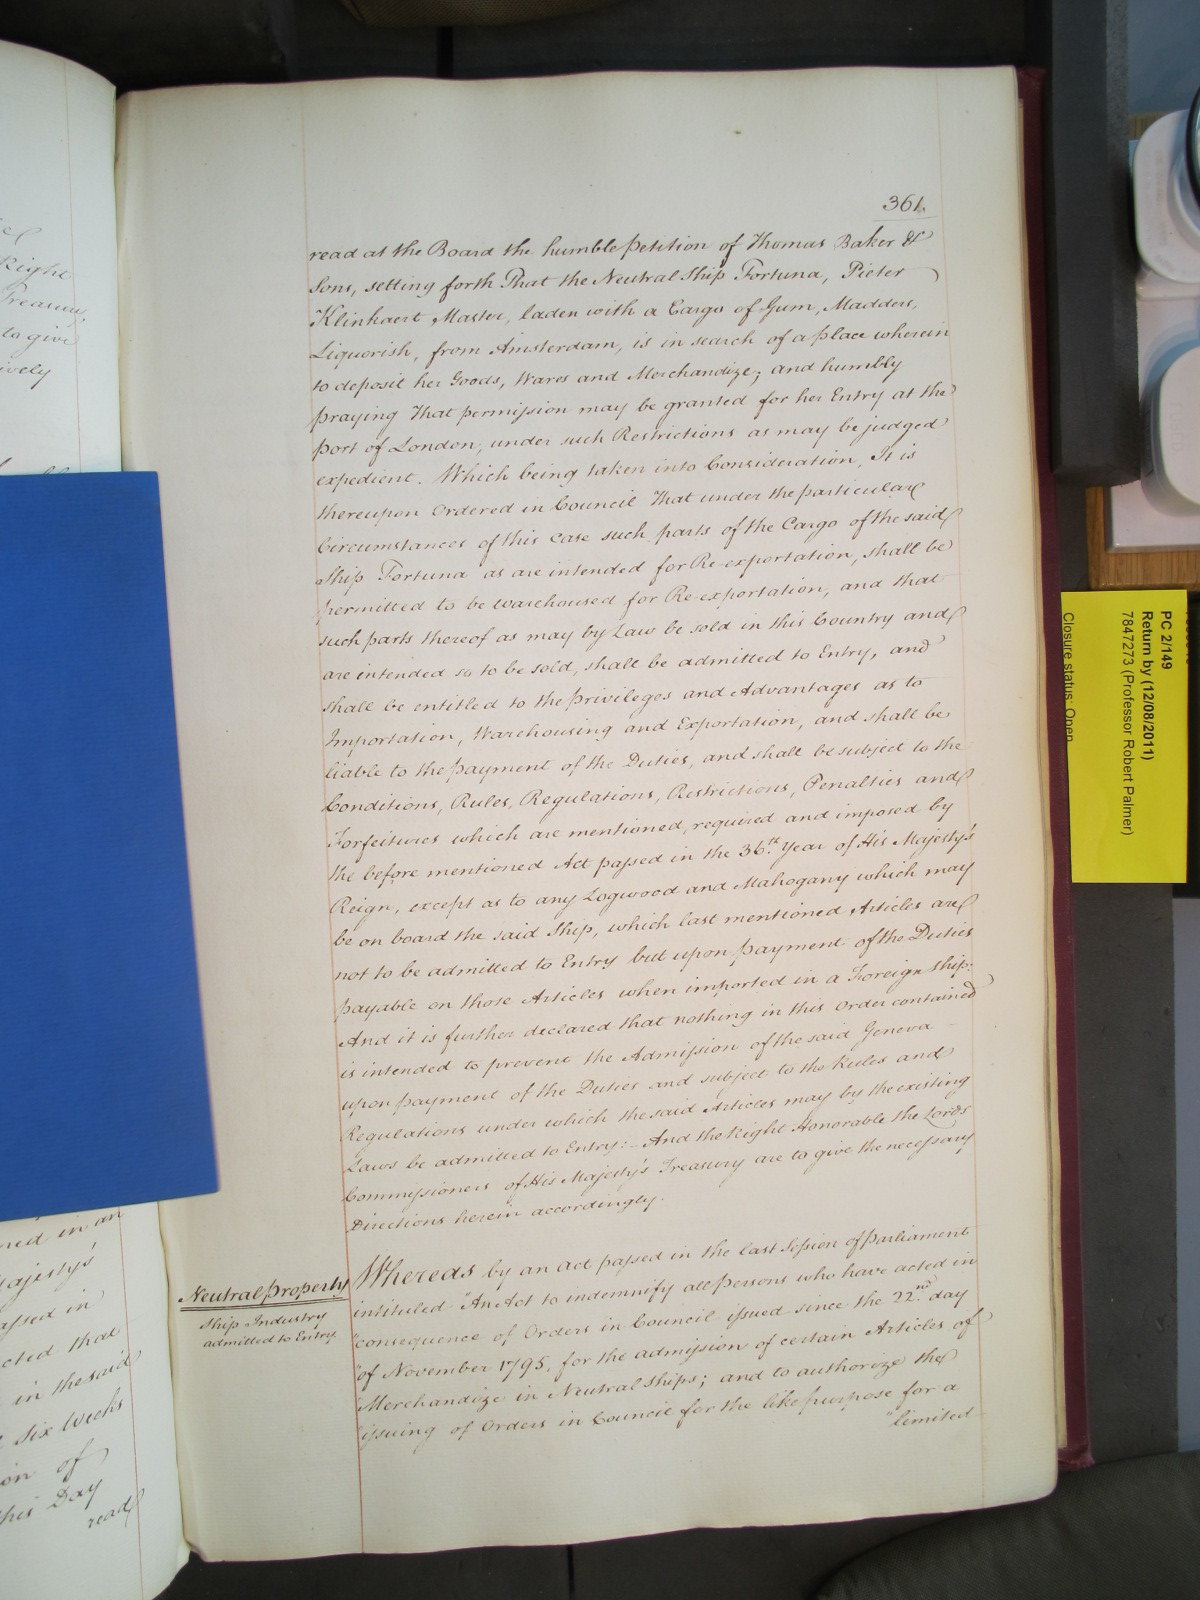 361.
read at the Board the humble Petition of Thomas Baker &
Sons, setting forth That the Neutral Ship Fortuna, Pieter
Klinkaert Master, laden with a Cargo of Gum, Madders,
Liquorish, from Amsterdam, is in search of a place wherein
to deposit her Goods, Wares and Merchandize; and humbly
praying That permission may be granted for her Entry at the
port of London, under such Restrictions as may be judged
expedient. Which being taken into Consideration, It is
thereupon Ordered in Council That under the particular
Circumstances of this Case such parts of the Cargo of the said
Ship Fortuna as are intended for Re-exportation, shall be
permitted to be warehoused for Re-exportation, and that
such parts thereof as may by Law be sold in this Country and
are intended so to be sold, shall be admitted to Entry, and
shall be entitled to the Privileges and Advantages as to
Importation, Warehousing and Exportation, and shall be
liable to the payment of the Duties, and shall be subject to the
Conditions, Rules, Regulations, Restrictions, Penalties and
Forfeitures which are mentioned, required and imposed by
the before mentioned Act passed in the 36th Year of His Majesty's
Reign, except as to any Logwood and Mahogany which may
be on board the said Ship, which last mentioned Articles are
not to be admitted to Entry but upon payment of the Duties
payable on those Articles when imported in a Foreign Ship:
And it is further declared that nothing in this Order contained
is intended to prevent the Admission of the said Geneva
upon payment of the Duties and subject to the Rules and
Regulations under which the said Articles may by the existing
Laws be admitted to Entry:- And the Right Honorable the Lords
Commissioners of His Majesty's Treasury are to give the necessary
Directions herein accordingly.
Neutral property
Ship Industry
admitted to Entry.
Whereas by an Act passed in the last Session of Parliament
intituled "An Act to indemnify all Persons who have acted in
"consequence of Orders in Council issued since the 22nd day
"of November 1795, for the admission of certain Articles of
"Merchandize in Neutral Ships; and to authorize the
"issuing of Orders in Council for the like purpose for a
"limited
Right
Treasury
to give
ively
ned in an
Majesty's
assed in
cted that
in the said
Six Weeks
on of
this Day
read
PC 2/149
Return by (12/08/2011)
7847273 (Professor Robert Palmer)
Closure status: Open